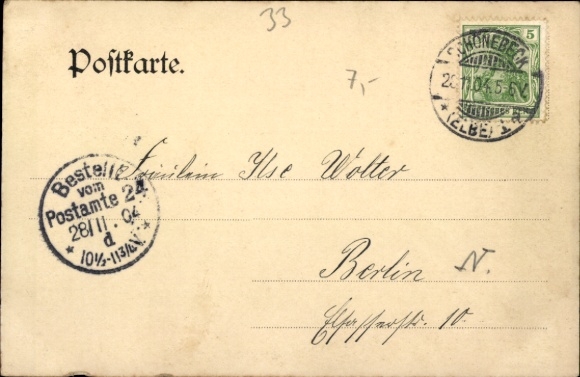 33
Postkarte.
7,-
5
SCHÖNEBECK
11.04. 5-6N.
* (ELBE) 1 a *
Fräulein Ilse Wolter
Bestellt
vom
Postamte 24
28/11.04
d
* 10½-11¾N. *
Berlin N.
Elsasserstr. 10.